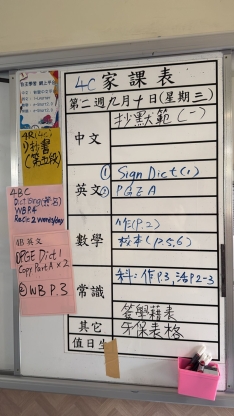 4C 家課表
第二週九月十日(星期三)
中文
抄默範(一)
英文
① Sign Dict(1)
② PGE A
數學
作(P.2)
校本(P.5,6)
常識
科:作P.3,活P.2-3
簽學籍表
其它
牙保表格
值日生
4R(4C)
1)抄書
(第五段)
4BC
WB P.4
4B 英文
Copy Part A x 2
② WB P.3